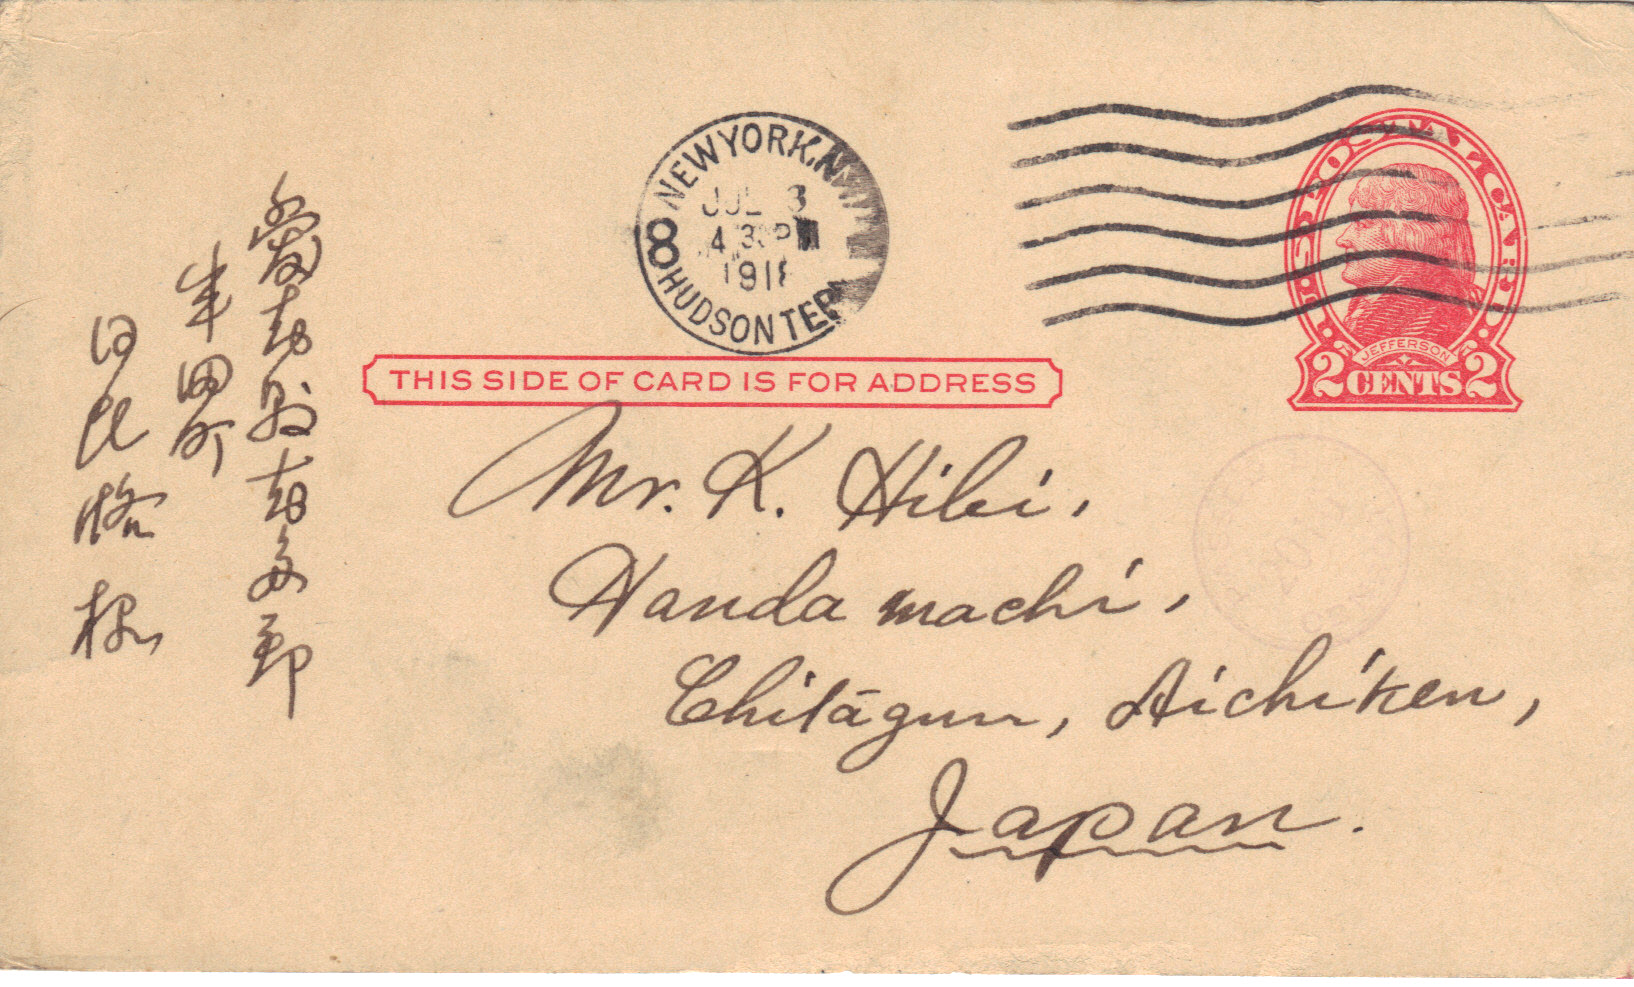 NEW YORK, N.
JUL 3
4 30 PM
1918
8
HUDSON TER
U.S. POSTAL CARD
JEFFERSON
2 CENTS 2
THIS SIDE OF CARD IS FOR ADDRESS
Mr. K. Hibi,
Handa machi,
Chitāgun, Aichiken,
Japan.
愛知縣知多郡
半田町
日比 様